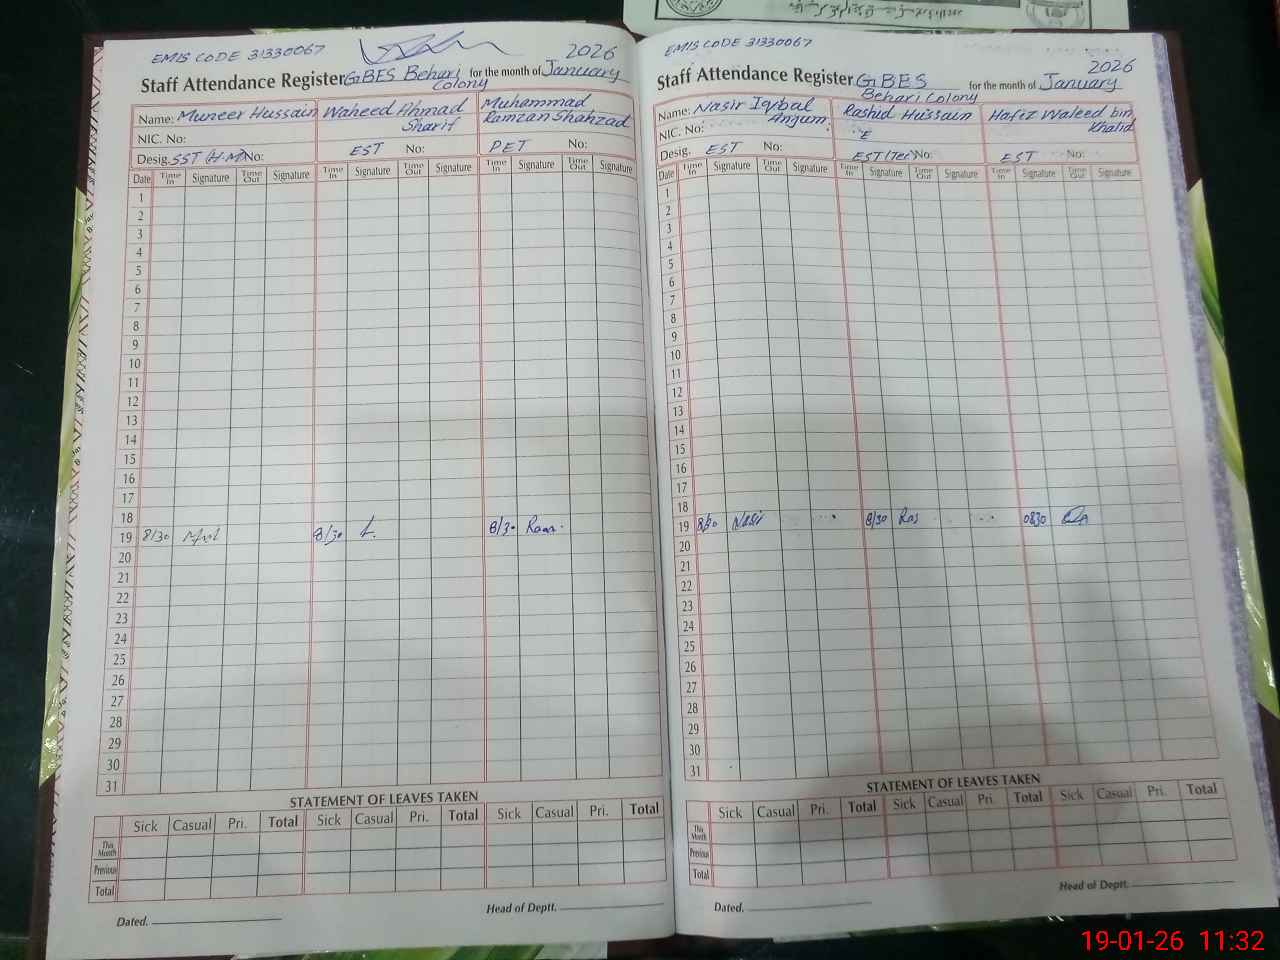 EMIS CODE 31330067
2026
Staff Attendance Register GBES Behari Colony for the month of January
Name: Muneer Hussain Waheed Ahmad Sharif Muhammad Ramzan Shahzad
NIC. No:
Desig. SST (H.M) No: EST No: PET No:
Date Time In Signature Time Out Signature Time In Signature Time Out Signature Time In Signature Time Out Signature
1
2
3
4
5
6
7
8
9
10
11
12
13
14
15
16
17
18
19 8/30 8/30 8/30 Ram.
20
21
22
23
24
25
26
27
28
29
30
31
STATEMENT OF LEAVES TAKEN
Sick Casual Pri. Total Sick Casual Pri. Total Sick Casual Pri. Total
This Month
Previous
Total
Dated. Head of Deptt.
EMIS CODE 31330067
2026
Staff Attendance Register GBES Behari Colony for the month of January
Name: Nasir Iqbal Anjum Rashid Hussain Hafiz Waleed bin Khalid
NIC. No:
Desig. EST No: EST(Tec) No: EST No:
Date Time In Signature Time Out Signature Time In Signature Time Out Signature Time In Signature Time Out Signature
1
2
3
4
5
6
7
8
9
10
11
12
13
14
15
16
17
18
19 8/30 Nasir 8/30 Ras 0830
20
21
22
23
24
25
26
27
28
29
30
31
STATEMENT OF LEAVES TAKEN
Sick Casual Pri. Total Sick Casual Pri. Total Sick Casual Pri. Total
This Month
Previous
Total
Dated. Head of Deptt.
19-01-26 11:32